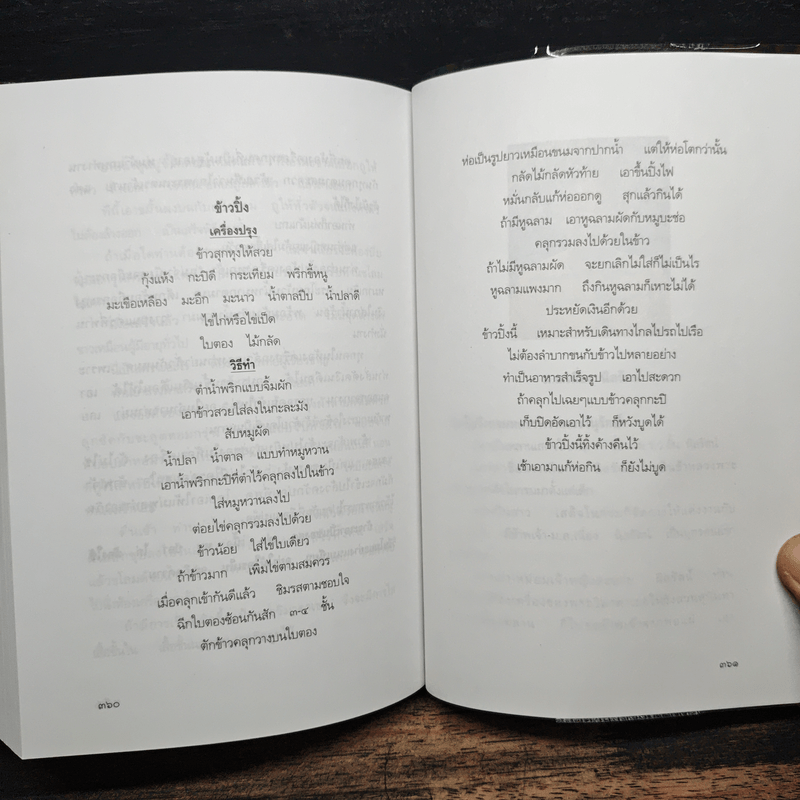 ข้าวปิ้ง
เครื่องปรุง
ข้าวสุกหุงให้สวย
กุ้งแห้ง กะปิดี กระเทียม พริกขี้หนู
มะเขือเหลือง มะอึก มะนาว น้ำตาลปีบ น้ำปลาดี
ไข่ไก่หรือไข่เป็ด
ใบตอง ไม้กลัด
วิธีทำ
ตำน้ำพริกแบบจิ้มผัก
เอาข้าวสวยใส่ลงในกะละมัง
สับหมูผัด
น้ำปลา น้ำตาล แบบทำหมูหวาน
เอาน้ำพริกกะปิที่ตำไว้คลุกลงไปในข้าว
ใส่หมูหวานลงไป
ต่อยไข่คลุกรวมลงไปด้วย
ข้าวน้อย ใส่ไข่ใบเดียว
ถ้าข้าวมาก เพิ่มไข่ตามสมควร
เมื่อคลุกเข้ากันดีแล้ว ชิมรสตามชอบใจ
ฉีกใบตองซ้อนกันสัก ๓-๔ ชั้น
ตักข้าวคลุกวางบนใบตอง
๓๖๐
ห่อเป็นรูปยาวเหมือนขนมจากปากน้ำ แต่ให้ห่อโตกว่านั้น
กลัดไม้กลัดหัวท้าย เอาขึ้นปิ้งไฟ
หมั่นกลับแก้ห่อออกดู สุกแล้วกินได้
ถ้ามีหูฉลาม เอาหูฉลามผัดกับหมูบะช่อ
คลุกรวมลงไปด้วยในข้าว
ถ้าไม่มีหูฉลามผัด จะยกเลิกไม่ใส่ก็ไม่เป็นไร
หูฉลามแพงมาก ถึงกินหูฉลามก็เหาะไม่ได้
ประหยัดเงินอีกด้วย
ข้าวปิ้งนี้ เหมาะสำหรับเดินทางไกลไปรถไปเรือ
ไม่ต้องลำบากขนกับข้าวไปหลายอย่าง
ทำเป็นอาหารสำเร็จรูป เอาไปสะดวก
ถ้าคลุกไปเฉยๆแบบข้าวคลุกกะปิ
เก็บปิดอัดเอาไว้ ก็หวังบูดได้
ข้าวปิ้งนี้ทิ้งค้างคืนไว้
เช้าเอามาแก้ห่อกิน ก็ยังไม่บูด
๓๖๑